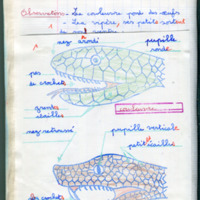 Observation : La couleuvre pond des œufs
1 - La vipère, ses petits sortent
de son ventre
nez arrondi pupille
ronde
pas de crochets
grandes
écailles
couleuvre
nez retroussé pupille verticale
petites écailles
des crochets